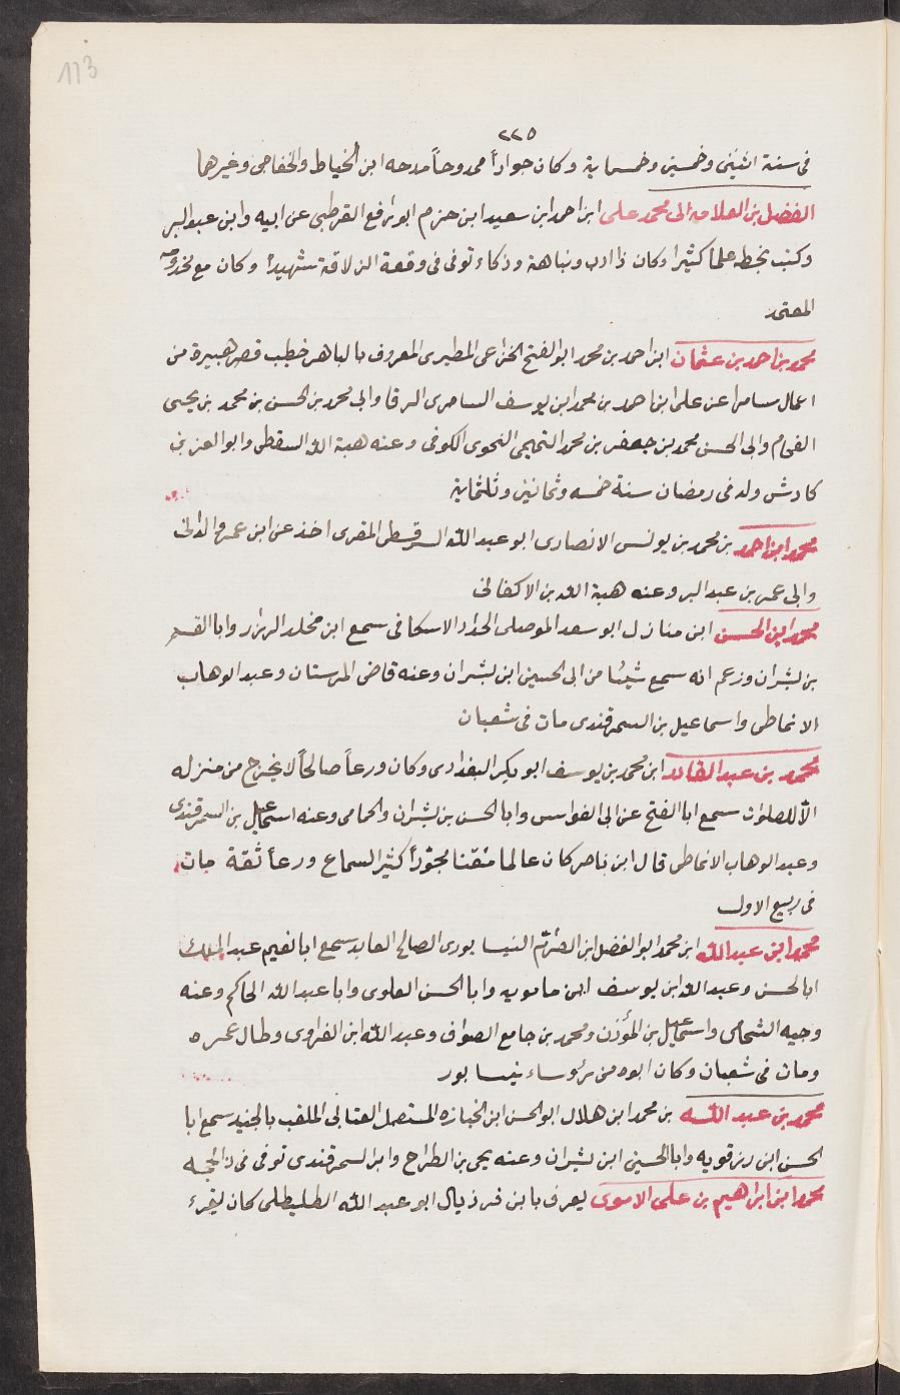 113
٢٢٥
فى سنة اثنين وخمسين وخمسماية وكان جواداً ممدوحاً مدحه ابن الخياط والخفاجى وغيرهما
الفضل بن العلامه الى محمد على ابن احمد ابن سعيد ابن حزم ابو رافع القرطبى عن ابيه وابن عبد البر
وكتب بخطه علما كثيرا وكان ذا ادب ونباهة وذكاء توفى فى وقعة الزلاقة شهيداً وكان مع مخدومه
المعتمد
محمد بن احمد بن عثمان ابن احمد بن محمد ابو الفتح الخزاعى المطيرى المعروف بالباهر خطيب قصر هبيرة من
اعمال سامرا عن على ابن احمد بن محمد ابن يوسف السامرى الرفا وابى محمد بن الحسن بن محمد بن يحيى
الفحام وابى الحسن محمد بن جعفر بن محمد التميمى النحوى الكوفى وعنه هبة الله السقطى وابو العز بن
كادش ولد فى رمضان سنة خمسه وثمانين وثلثماية
محمد ابن احمد بن محمد بن يونس الانصارى ابو عبد الله السرقسطى المقرى اخذ عن ابن عمرو الدانى
وابى عمر بن عبد البر وعنه هبة الله بن الاكفانى
محمد ابن الحسن ابن منازل ابو سعد الموصلى الحداد الاسكافى سمع ابن مخلد البزار وابا القسم
بن بشران وزعم انه سمع شيئا من ابى الحسين ابن بشران وعنه قاضى المرستان وعبد الوهاب
الانماطى واسماعيل بن السمرقندى مات فى شعبان
محمد بن عبد القادر ابن محمد بن يوسف ابو بكر البغدادى وكان ورعاً صالحاً لا يخرج من منزله
الا للصلوات سمع ابا الفتح عن ابى الفوارس وابا الحسن بن بشران والحمامى وعنه اسماعيل بن السمرقندى
وعبد الوهاب الانماطى قال ابن ناصر كان عالما متقنا مجوّداً كثير السماع ورعاً ثقة مات
فى ربيع الاول
محمد ابن عبد الله ابن محمد ابو الفضل ابن الصرّام النيسابورى الصالح العابد سمع ابا نعيم عبد الملك
ابا الحسن وعبد الله ابن يوسف ابن مامويه وابا الحسن العلوى وابا عبد الله الحاكم وعنه
وجيه الشحامى واسماعيل بن المؤذن ومحمد بن جامع الصواف وعبد الله ابن الفراوى وطال عمره
ومات فى شعبان وكان ابوه من رؤوساء نيسابور
محمد بن عبد الله بن محمد ابن هلال ابو الحسن ابن الخبازه العتابى الملقب بالجنيد سمع ابا
الحسن ابن رزقويه وابا الحسين ابن بشران وعنه يحيى بن الطراح وابن السمرقندى توفى فى ذا الحجه
محمد ابن ابراهيم بن على الاسوى يعرف بابن قرذيال ابو عبد الله الطليطلى كان يقرء